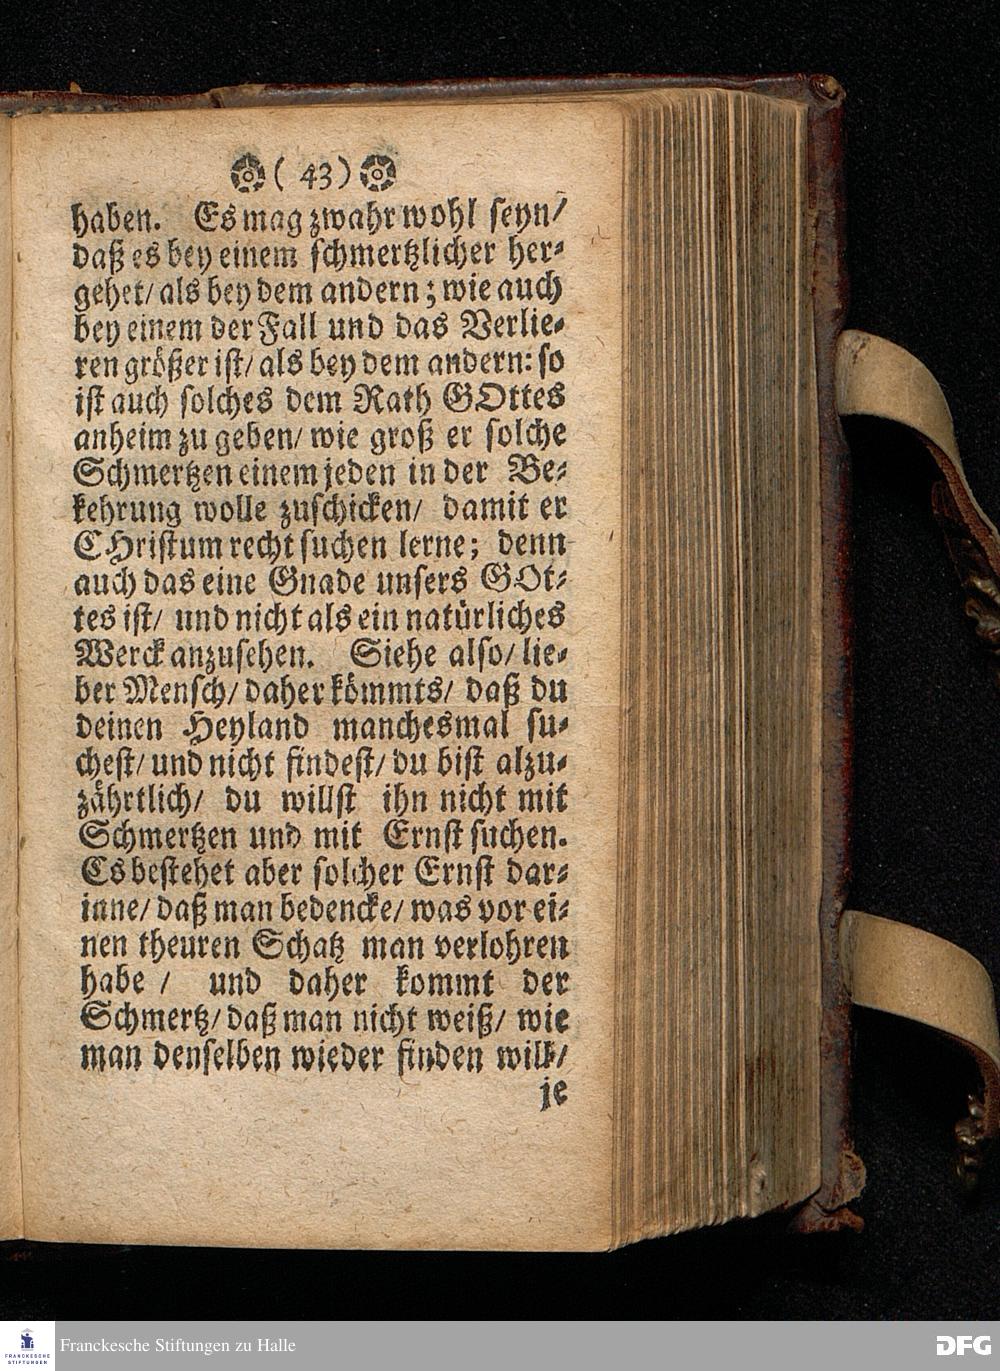 ( 43 )
haben. Es mag zwahr wohl seyn/
daß es bey einem schmertzlicher her-
gehet/ als bey dem andern; wie auch
bey einem der Fall und das Verlie-
ren größer ist/ als bey dem andern: so
ist auch solches dem Rath GOttes
anheim zu geben/ wie groß er solche
Schmertzen einem jeden in der Be-
kehrung wolle zuschicken/ damit er
CHristum recht suchen lerne; denn
auch das eine Gnade unsers GOt-
tes ist/ und nicht als ein natürliches
Werck anzusehen. Siehe also/ lie-
ber Mensch/ daher kömmts/ daß du
deinen Heyland manchesmal su-
chest/ und nicht findest/ du bist alzu-
zährtlich/ du willst ihn nicht mit
Schmertzen und mit Ernst suchen.
Es bestehet aber solcher Ernst dar-
inne/ daß man bedencke/ was vor ei-
nen theuren Schatz man verlohren
habe / und daher kommt der
Schmertz/ daß man nicht weiß/ wie
man denselben wieder finden will/
je
FRANCKESCHE
STIFTUNGEN
Franckesche Stiftungen zu Halle
DFG